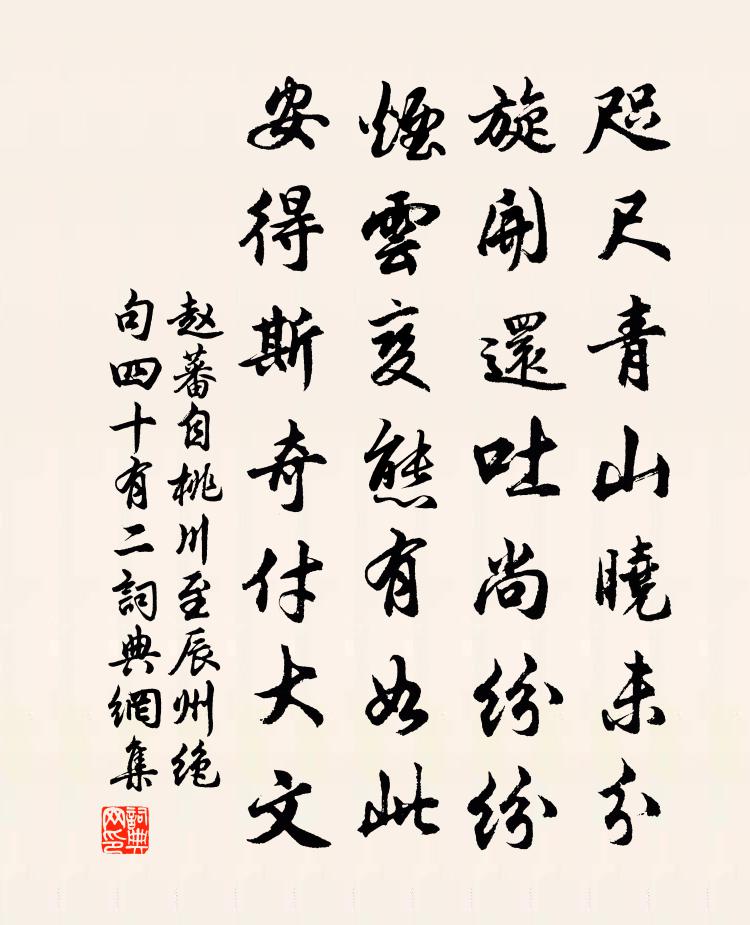 咫尺青山曉未分
旋開還吐尚紛紛
煙雲變態有如此
安得斯奇付大文
赵蕃自桃川至辰州绝
句四十有二詞典網集
詞典
网印